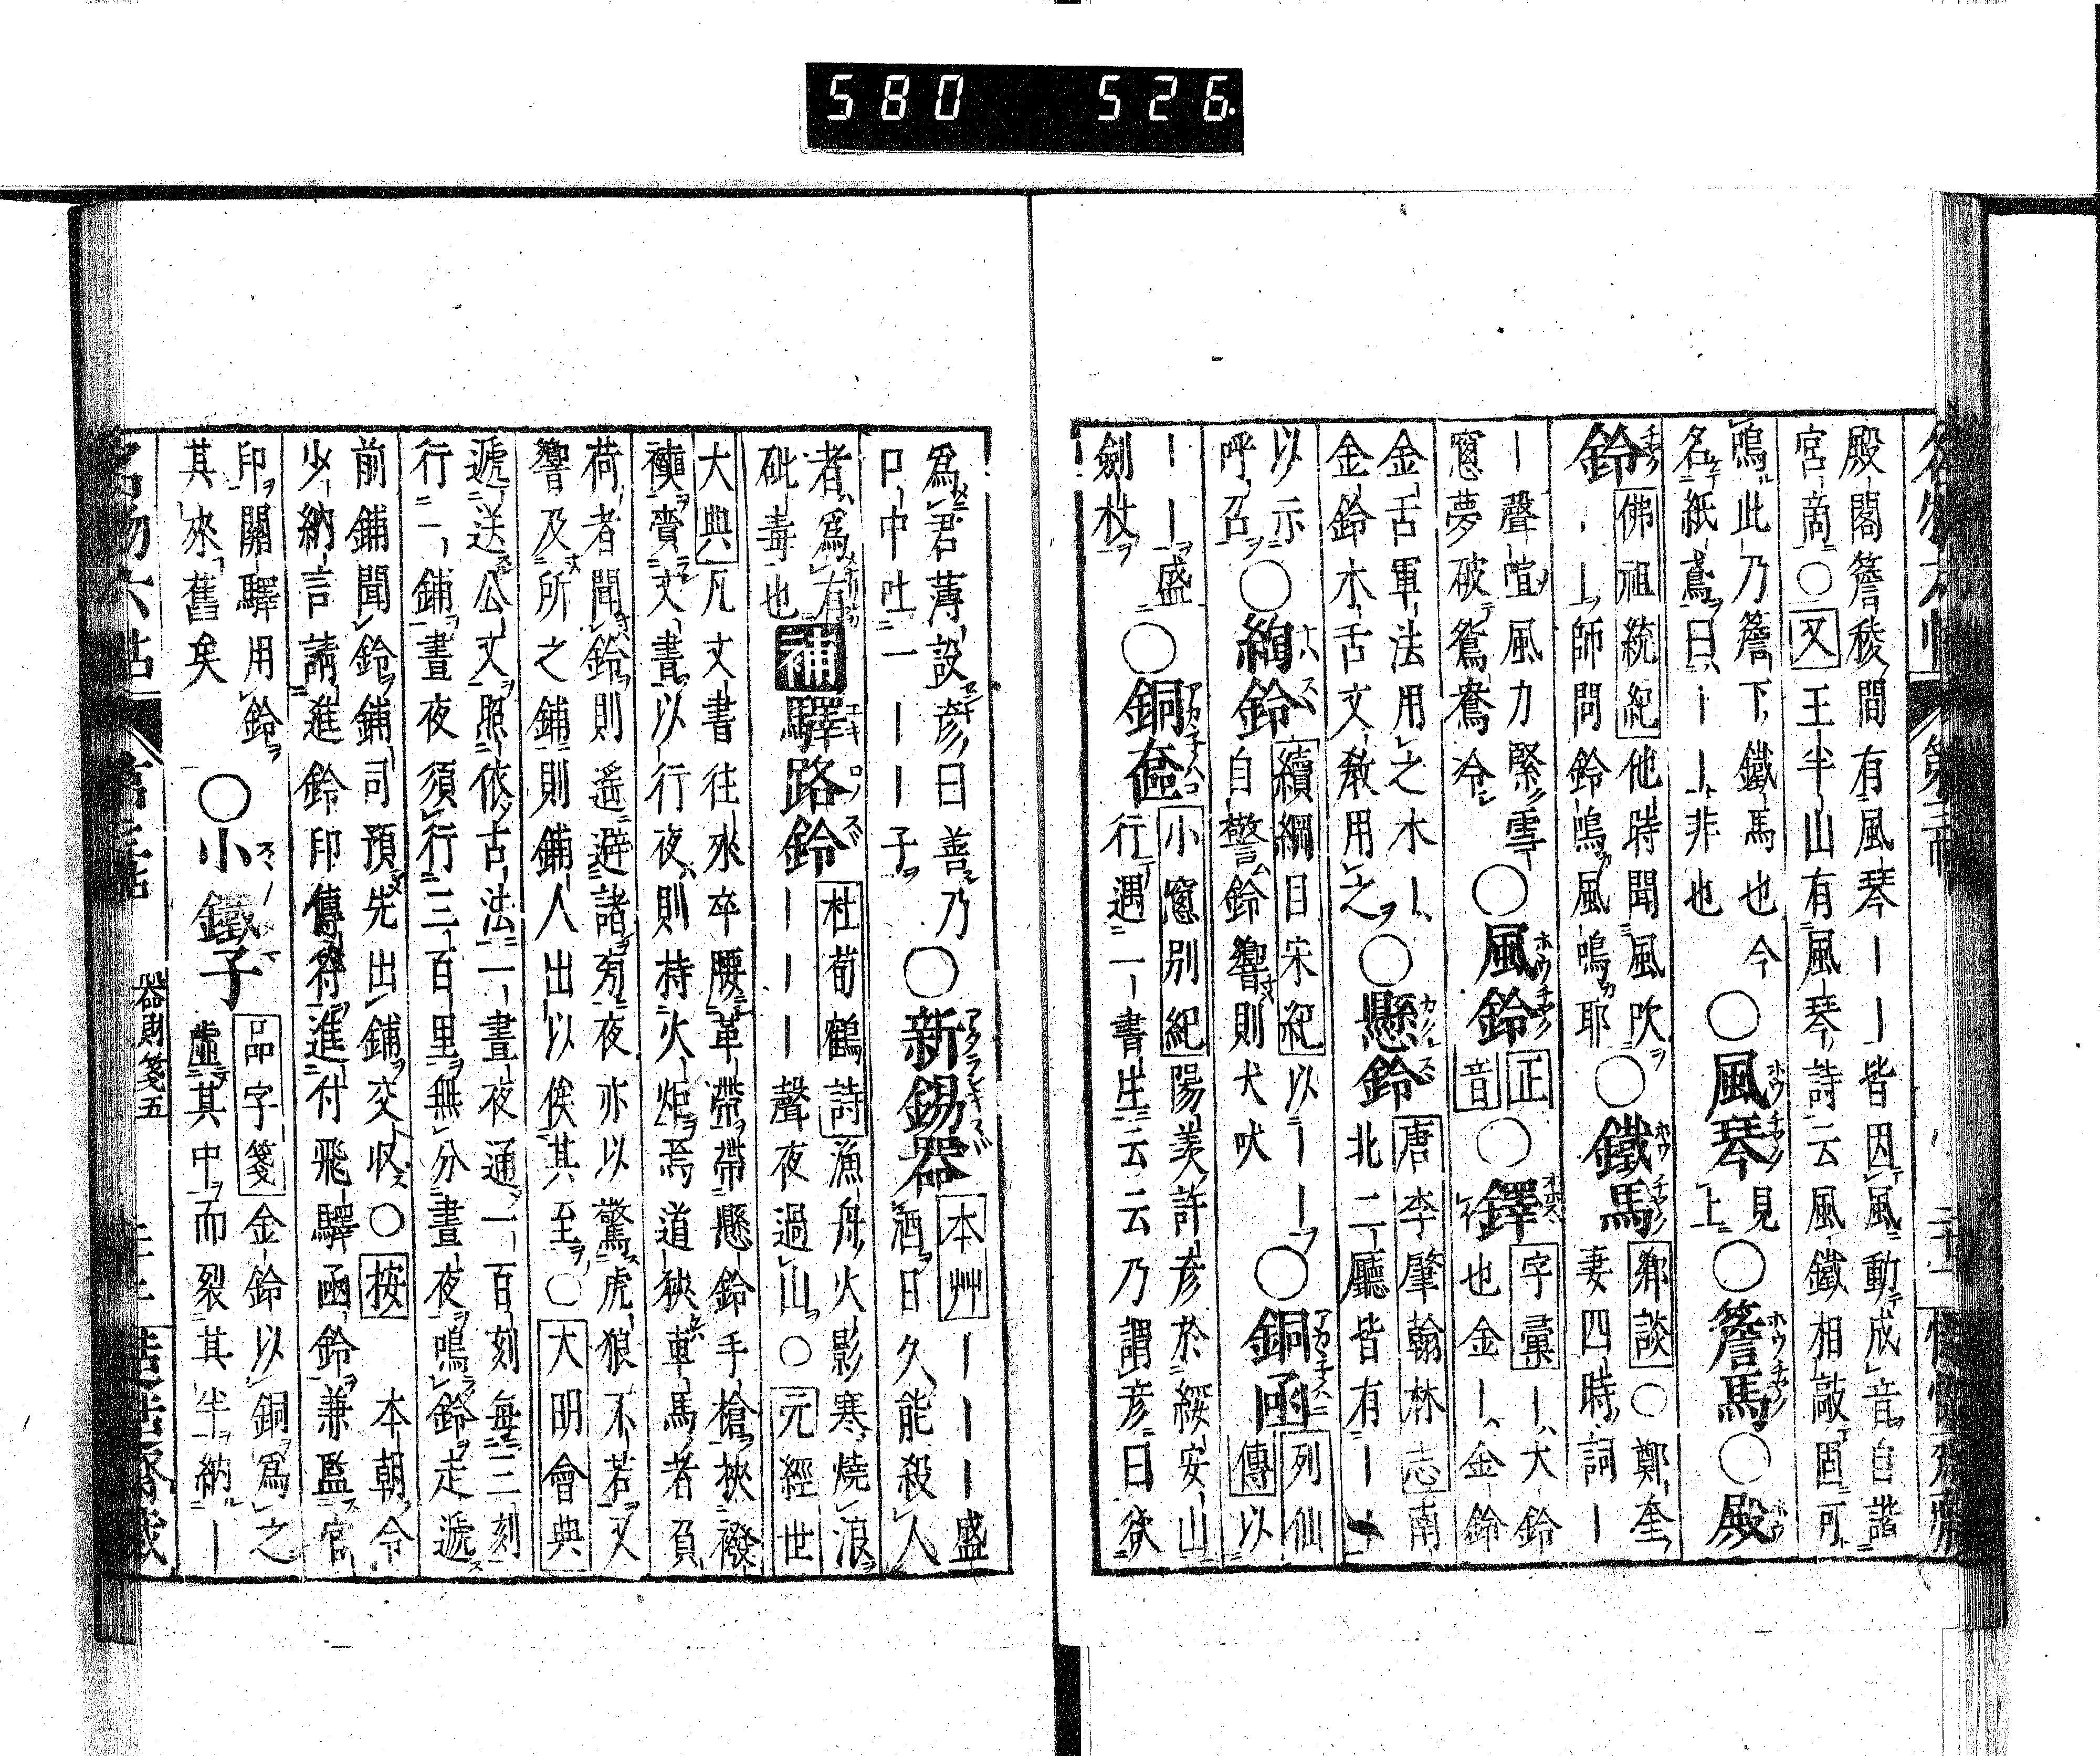 580 526.
殿閣簷稜間有風琴丨丨皆因風動成音自諧
宮商〇又王半山有風琴詩云風鐵相敲固可
鳴此乃簷下鐵馬也今
名紙鳶曰丨丨非也
〇風琴見上〇簷馬〇殿
鈴
佛祖統紀他時聞風吹
丨丨師問鈴鳴風鳴耶
〇鐵馬
鄉談〇鄭奎
妻四時詞丨
丨聲喧風力緊雪
窓夢破鴛鴦冷
〇風鈴
正
音
〇鐸
字彙丨大鈴
也金丨金鈴
金舌軍法用之木丨
金鈴木舌文敎用之
〇懸鈴
唐李肇翰林志南
北二廳皆有丨丨
以示
呼召
〇絢鈴
續綱目宋紀以丨丨
自警鈴響則犬吠
〇銅函
列仙
傳以
丨丨盛
劍杖
〇銅奩
小窓別紀陽羨許彥於綏安山
行遇一書生云云乃謂彥曰欲
爲君薄設彥曰善乃
口中吐一丨丨子
〇新錫器
本艸丨丨丨盛
酒日久能殺人
者爲有
砒毒也
補
驛路鈴
杜荀鶴詩漁舟火影寒燒浪
丨丨丨聲夜過山〇元經世
大典凡文書往來卒腰革帶帶懸鈴手槍挾襏
襫賫文書以行夜則持火炬焉道狹車馬者負
荷者聞鈴則遥避諸旁夜亦以驚虎狼不若又
響及所之鋪則鋪人出以俟其至〇大明會典
遞送公文照依古法一晝夜通一百刻每三刻
行一鋪晝夜須行三百里無分晝夜鳴鈴走遞
前鋪聞鈴鋪司預先出鋪交収〇按 本朝令
少納言請進鈴印傳符進付飛驛函鈴兼監官
印關驛用鈴
其來舊矣
〇小鐵子
品字箋金鈴以銅爲之
虛其中而裂其半納丨
器財箋五